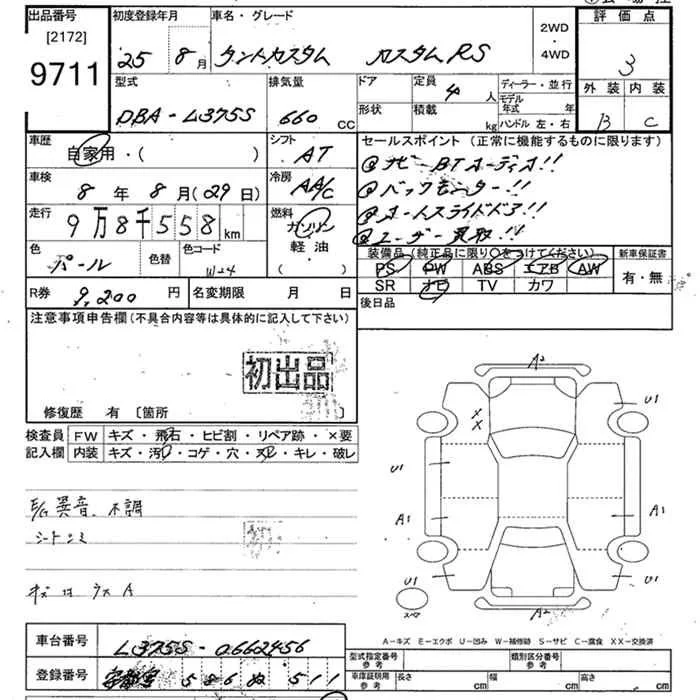 出品番号
[2172]
9711
初度登録年月
25 8月
車名・グレード
タントカスタム カスタムRS
2WD・4WD
評価点
3
外装 内装
B C
型式
DBA-L375S
排気量
660 CC
ドア
形状
定員 4人
積載 kg
ディーラー・並行
モデル年式 年
ハンドル 左・右
車歴
自家用・( )
シフト
AT
セールスポイント (正常に機能するものに限ります)
①ナビーBTオーディオ!!
②バックモニター!!
③オートスライドドア!!
④ユーザー買取!!
車検
8年8月(29日)
冷房
AA/C
走行
9万8千558km
燃料
ガソリン
軽油
( )
色
パール
色替
色コード
W24
装備品 (純正品に限り○をつけてください)
新車保証書
PS PW ABS エアB AW
SR ナビ TV カワ
有・無
R券 9,200円
名変期限 月 日
後日品
注意事項申告欄 (不具合内容等は具体的に記入して下さい)
初出品
修復歴 有 〔箇所 〕
検査員記入欄
FW キズ・飛石・ヒビ割・リペア跡・×要
内装 キズ・汚・コゲ・穴・ヌレ・キレ・破レ
E/G異音、不調
シートシミ
A2
U1
U1
U1
A1
A1
A2
スペア
A-キズ E-エクボ U-凹み W-補修跡 S-サビ C-腐食 XX-交換済
車台番号
L375S-0662456
登録番号
586 511
型式指定番号 参考
類別区分番号 参考
車庫証明用 参考
長さ cm
幅 cm
高さ cm